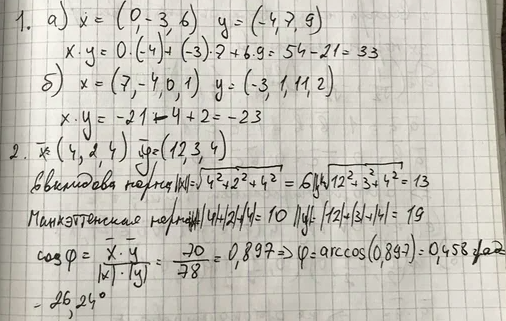 1. а) x = (0, -3, 6) y = (-4, 7, 9)
x · y = 0·(-4) + (-3)·7 + 6·9 = 54 - 21 = 33
б) x = (7, -4, 0, 1) y = (-3, 1, 11, 2)
x · y = -21 - 4 + 2 = -23
2. x̄ = (4, 2, 4) ȳ = (12, 3, 4)
Евклидова норма |x| = √4²+2²+4² = 6 |y| = √12²+3²+4² = 13
Манхэттенская норма |x| = |4|+|2|+|4| = 10 |y| = |12|+|3|+|4| = 19
cos φ = x̄ · ȳ / |x| · |y| = 70 / 78 = 0,897 => φ = arccos(0,897) = 0,458 рад
- 26,24°